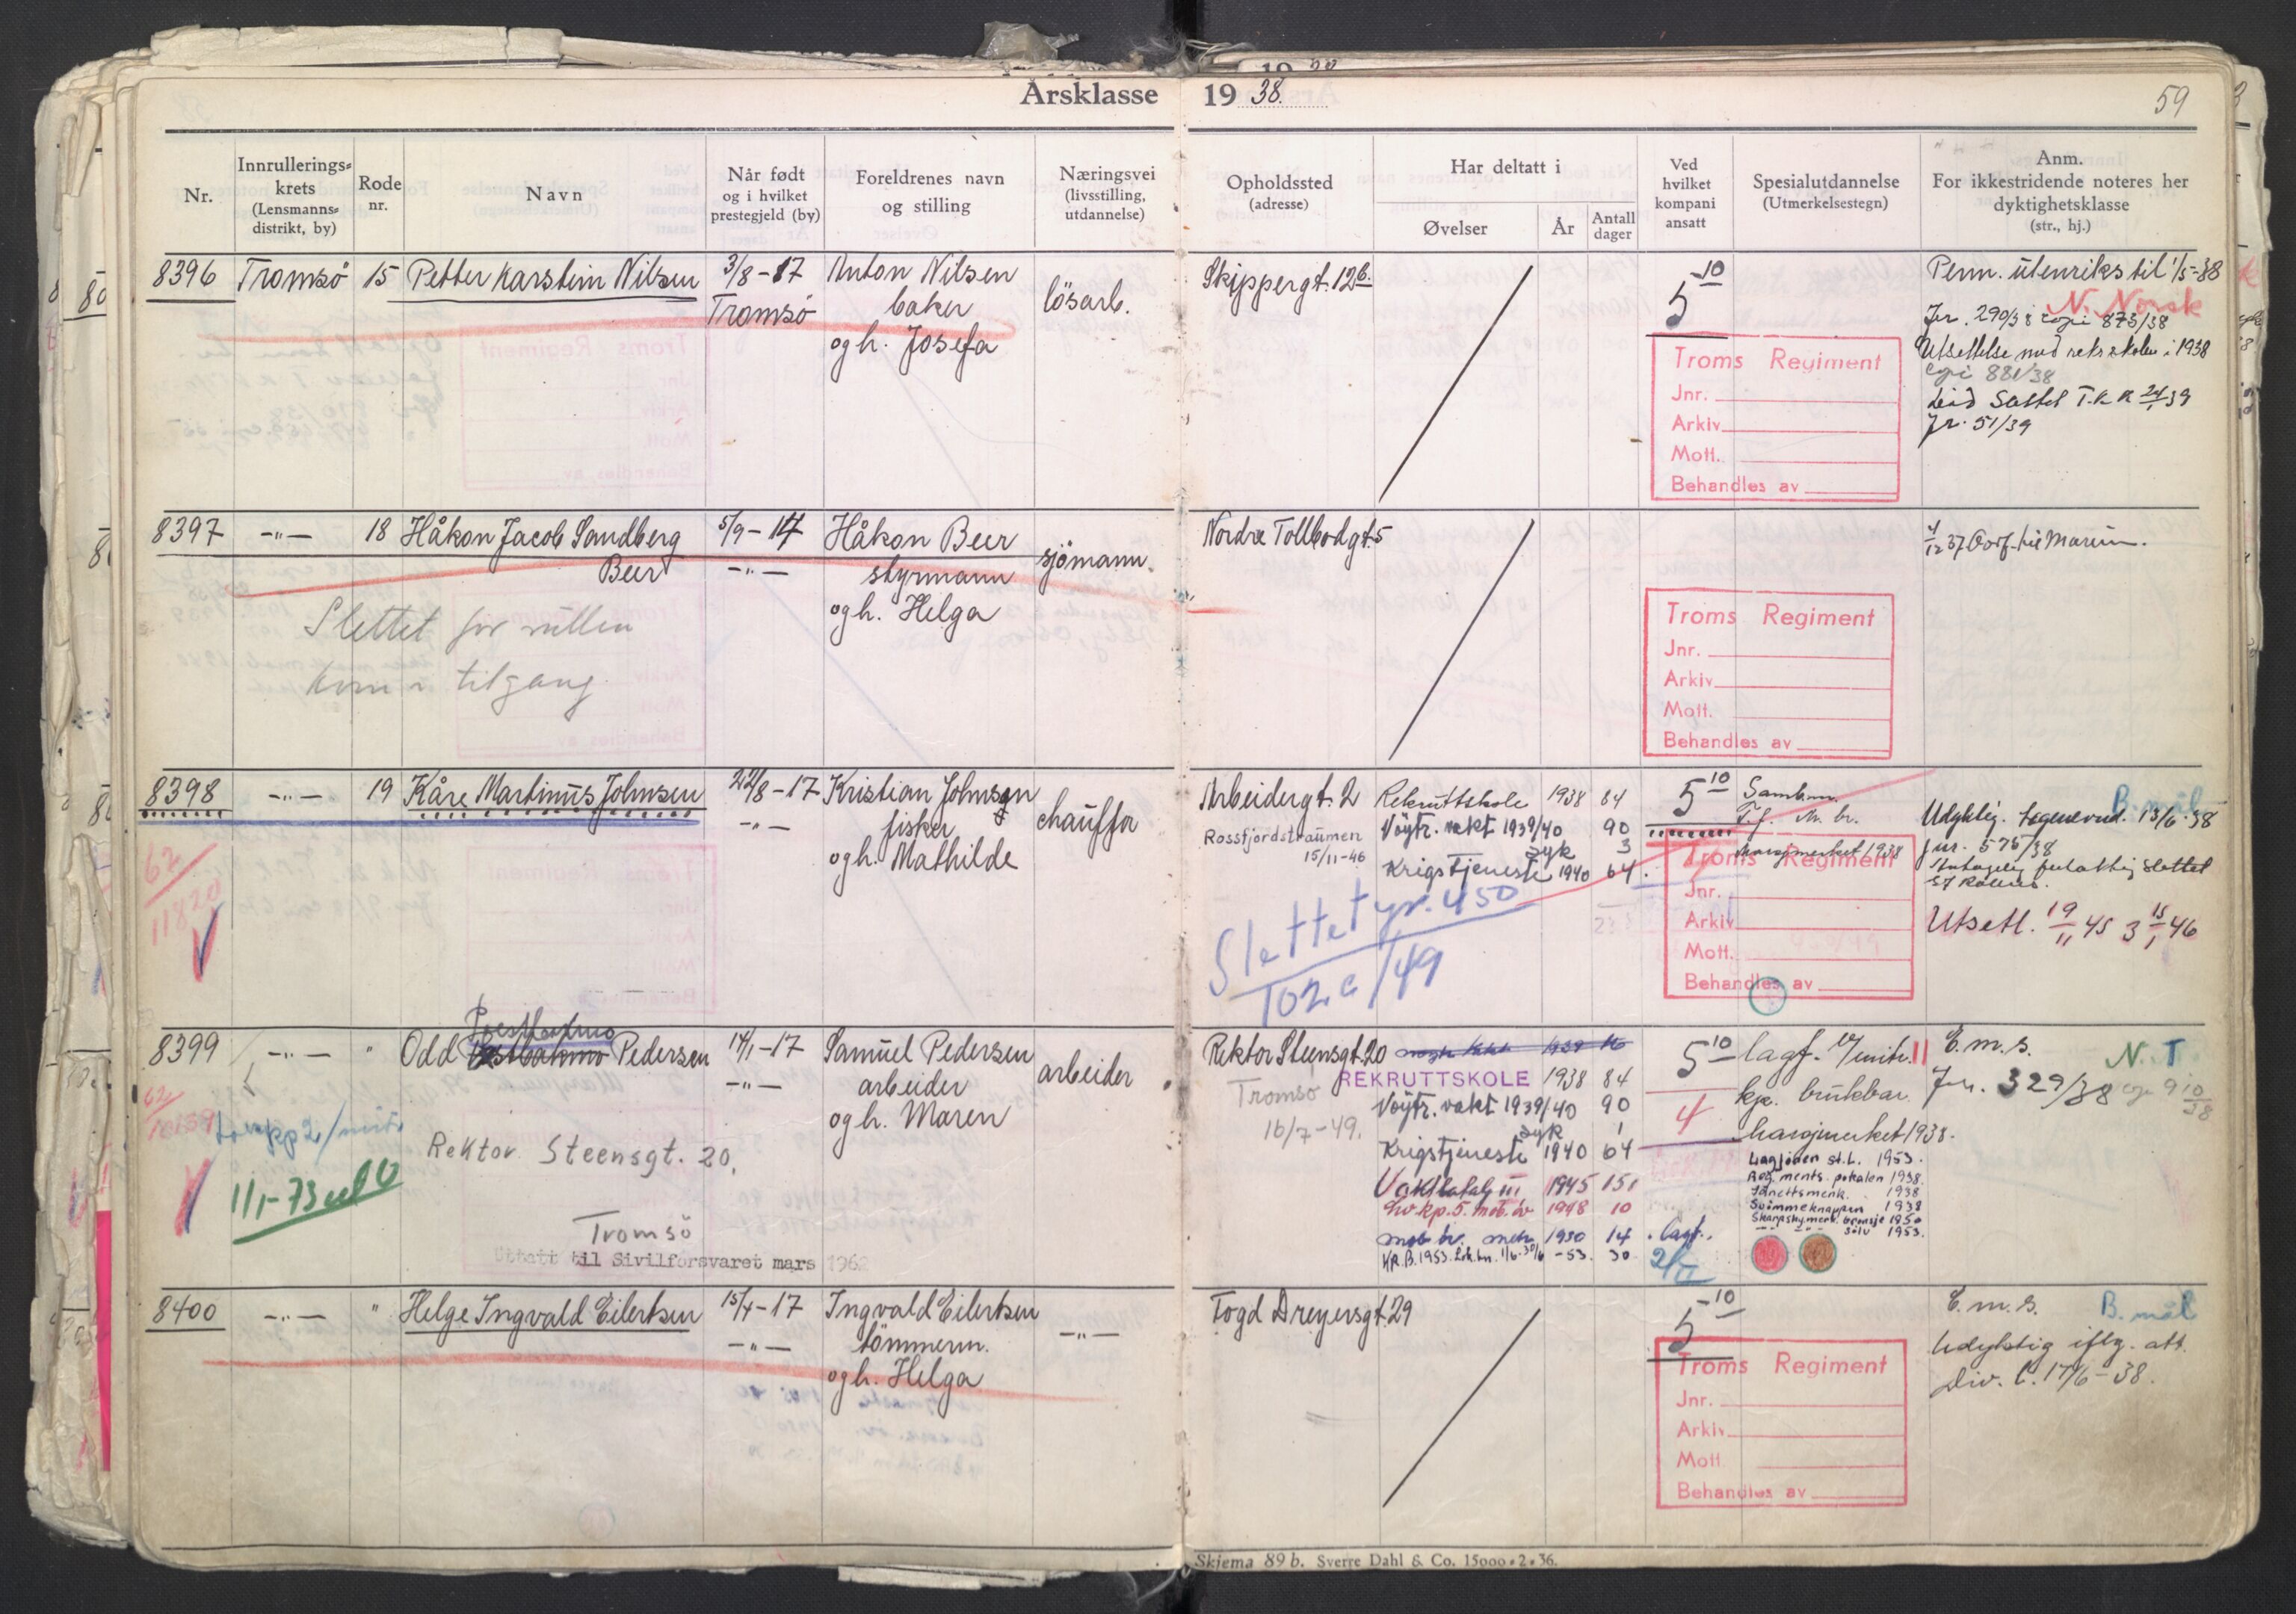 Årsklasse 19 38.
59
Nr.
Innrullerings-
krets
(Lensmanns-
distrikt, by)
Rode
nr.
Navn
Når født
og i hvilket
prestegjeld (by)
Foreldrenes navn
og stilling
Næringsvei
(livsstilling,
utdannelse)
Opholdssted
(adresse)
Har deltatt i
Øvelser
År
Antall
dager
Ved
hvilket
kompani
ansatt
Spesialutdannelse
(Utmerkelsestegn)
Anm.
For ikkestridende noteres her
dyktighetsklasse
(str., hj.)
8396 Tromsö 15 Petter Karstein Nilsen 3/8-17
Tromsö
Anton Nilsen
baker
og h. Josefa
lösarb.
Skippergt. 12b.
5 10
Perm. utenriks til 1/5-38
N. Norsk
Jnr. 290/38 copi 873/38
Utsettelse med rekrskolen i 1938
copi 881/38
Jr. 51/39
Troms Regiment
Jnr.
Arkiv
Mott.
Behandles av
8397 -"- 18 Håkon Jacob Sandberg
Beer
5/9-17
-"-
Håkon Beer
styrmann
og h. Helga
sjömann.
Slettet for rullen
Kom i tilgang
Nordre Tollbodgt. 5
4/12 37 Overf. til Marin.
Troms Regiment
Jnr.
Arkiv
Mott.
Behandles av
8398 -"- 19 Kåre Martinus Johnsen 22/8-17
-"-
Kristian Johnsen
fisker
og h. Mathilde
chauffør
62/
11820
Arbeidergt. 2
Rossfjordstraumen
15/11-46
Rekruttskole 1938 84
Nöytr. vakt 1939/40 90
syk 3
Krigstjeneste 1940 64.
Slettet jr. 450
702 c/49
5 10
Samb.m.
T.f.
Marsjmerket 1938
B. mål
Udyktig. Legeerkl. 13/6-38
jnr. 575/38
Utsett. 19/11 45 3 15/1 46
Troms Regiment
Jnr.
Arkiv
Mott.
Behandles av
8399 -"- " Odd Pedersen 14/1-17
-"-
Samuel Pedersen
arbeider
og h. Maren
arbeider
62/
10159
11/1-73
Rektor Steensgt. 20.
Tromsö
Uttatt til Sivilforsvaret mars 1962
Rektor Steensgt. 20
Tromsö
16/7-49.
REKRUTTSKOLE 1938 84
Nöytr. vakt 1939/40 90
syk 1
Krigstjeneste 1940 64
Vaktbatalj III 1945 151
Hv kp. 5. mob. öv 1948 10
1950 14
KP.B. 1953. 1/6-30/6 -53. 30
5 10
4
lagf.
2/II
lagf. 17/mitr. II
kp. brukbar.
Marsjmerket 1938.
Lagförer st.L. 1953.
Regiments pokalen 1938.
Idrettsmerk. 1938
Svömmeknappen 1938
Skarpskymerk. bronsje 1950
sölv 1953.
E.m.s.
N. T.
Jnr. 329/38
8400 -"- " Helge Ingvald Eilertsen 15/4-17
-"-
Ingvald Eilertsen
tömmerm.
og h. Helga
-"-
Fogd Dreyersgt. 29
5 10
E.m.s.
B. mål
Udyktig iflg. att.
Div. C. 17/6-38.
Troms Regiment
Jnr.
Arkiv
Mott
Behandles av
Skjema 89 b. Sverre Dahl & Co. 15000.2.36.